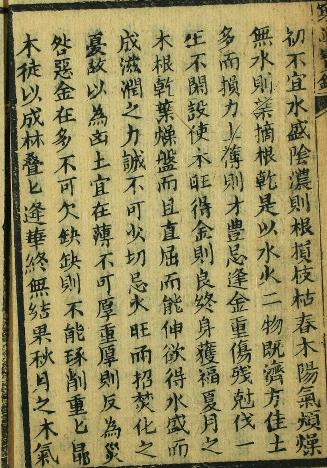 初不宜水盛陰濃則根損枝枯春木陽氣煩燥
無水則葉摘根乾是以水火二物既濟方佳土
多而損力土薄則才豊忌逢金重傷残尅伐一
生不閑設使木旺得金則良終身獲福夏月之
木根乾葉燥盤而且直屈而能伸欲得水盛而
成滋潤之力誠不可少切忌火旺而招焚化之
憂故以為凶土宜在薄不可厚重厚則反為災
咎惡金在多不可欠缺缺則不能琢削重匕見
木徒以成林叠匕逢華終無結果秋月之木氣